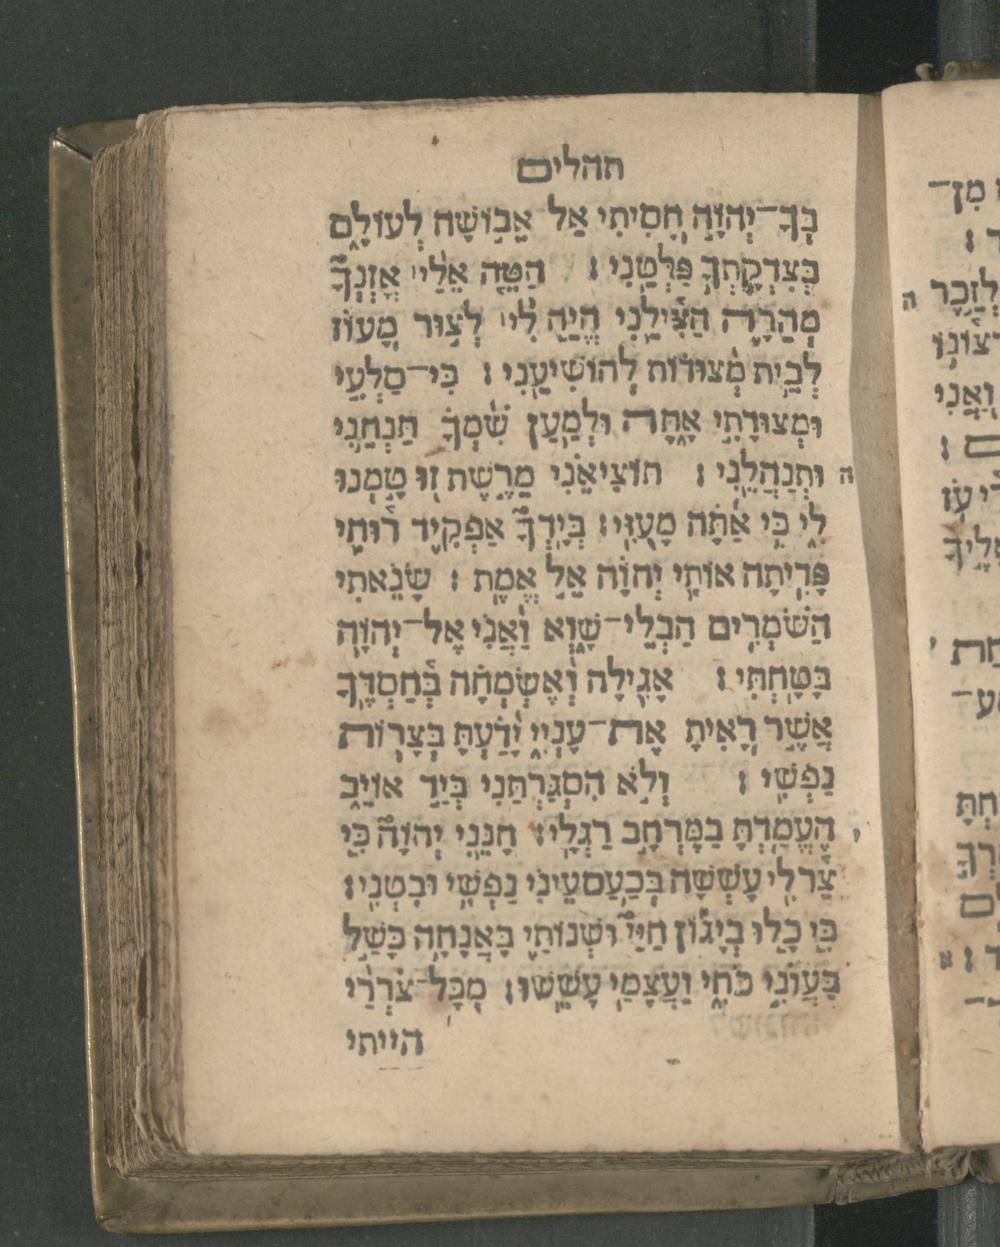 תהלים
בְּךָ־יְהוָה חָסִיתִי אַל אֵבוֹשָׁה לְעוֹלָם
בְּצִדְקָתְךָ פַּלְּטֵנִי : הַטֵּה אֵלַי אָזְנְךָ
מְהֵרָה הַצִּילֵנִי הֱיֵה לִי לְצוּר מָעוֹז
לְבֵית מְצוּדוֹת לְהוֹשִׁיעֵנִי : כִּי־סַלְעִי
וּמְצוּדָתִי אָתָּה וּלְמַעַן שִׁמְךָ תַּנְחֵנִי
וּתְנַהֲלֵנִי : תּוֹצִיאֵנִי מֵרֶשֶׁת זוּ טָמְנוּ
ה
לִי כִּי אַתָּה מָעֻזִּי : בְּיָדְךָ אַפְקִיד רוּחִי
פָּדִיתָה אוֹתִי יְהוָה אֵל אֱמֶת : שָׂנֵאתִי
הַשֹּׁמְרִים הַבְלֵי־שָׁוְא וַאֲנִי אֶל־יְהוָה
בָּטָחְתִּי : אָגִילָה וְאֶשְׂמְחָה בְּחַסְדֶּךָ
אֲשֶׁר רָאִיתָ אֶת־עָנְיִי יָדַעְתָּ בְּצָרוֹת
נַפְשִׁי : וְלֹא הִסְגַּרְתַּנִי בְּיַד אוֹיֵב
הֶעֱמַדְתָּ בַמֶּרְחָב רַגְלָי : חָנֵּנִי יְהוָה כִּי
צַר לִי עָשְׁשָׁה בְכַעַס עֵינִי נַפְשִׁי וּבִטְנִי :
כִּי כָלוּ בְיָגוֹן חַיַּי וּשְׁנוֹתַי בַּאֲנָחָה כָּשַׁל
בַּעֲוֹנִי כֹחִי וַעֲצָמַי עָשֵׁשׁוּ : מִכָּל־צֹרְרַי
הייתי